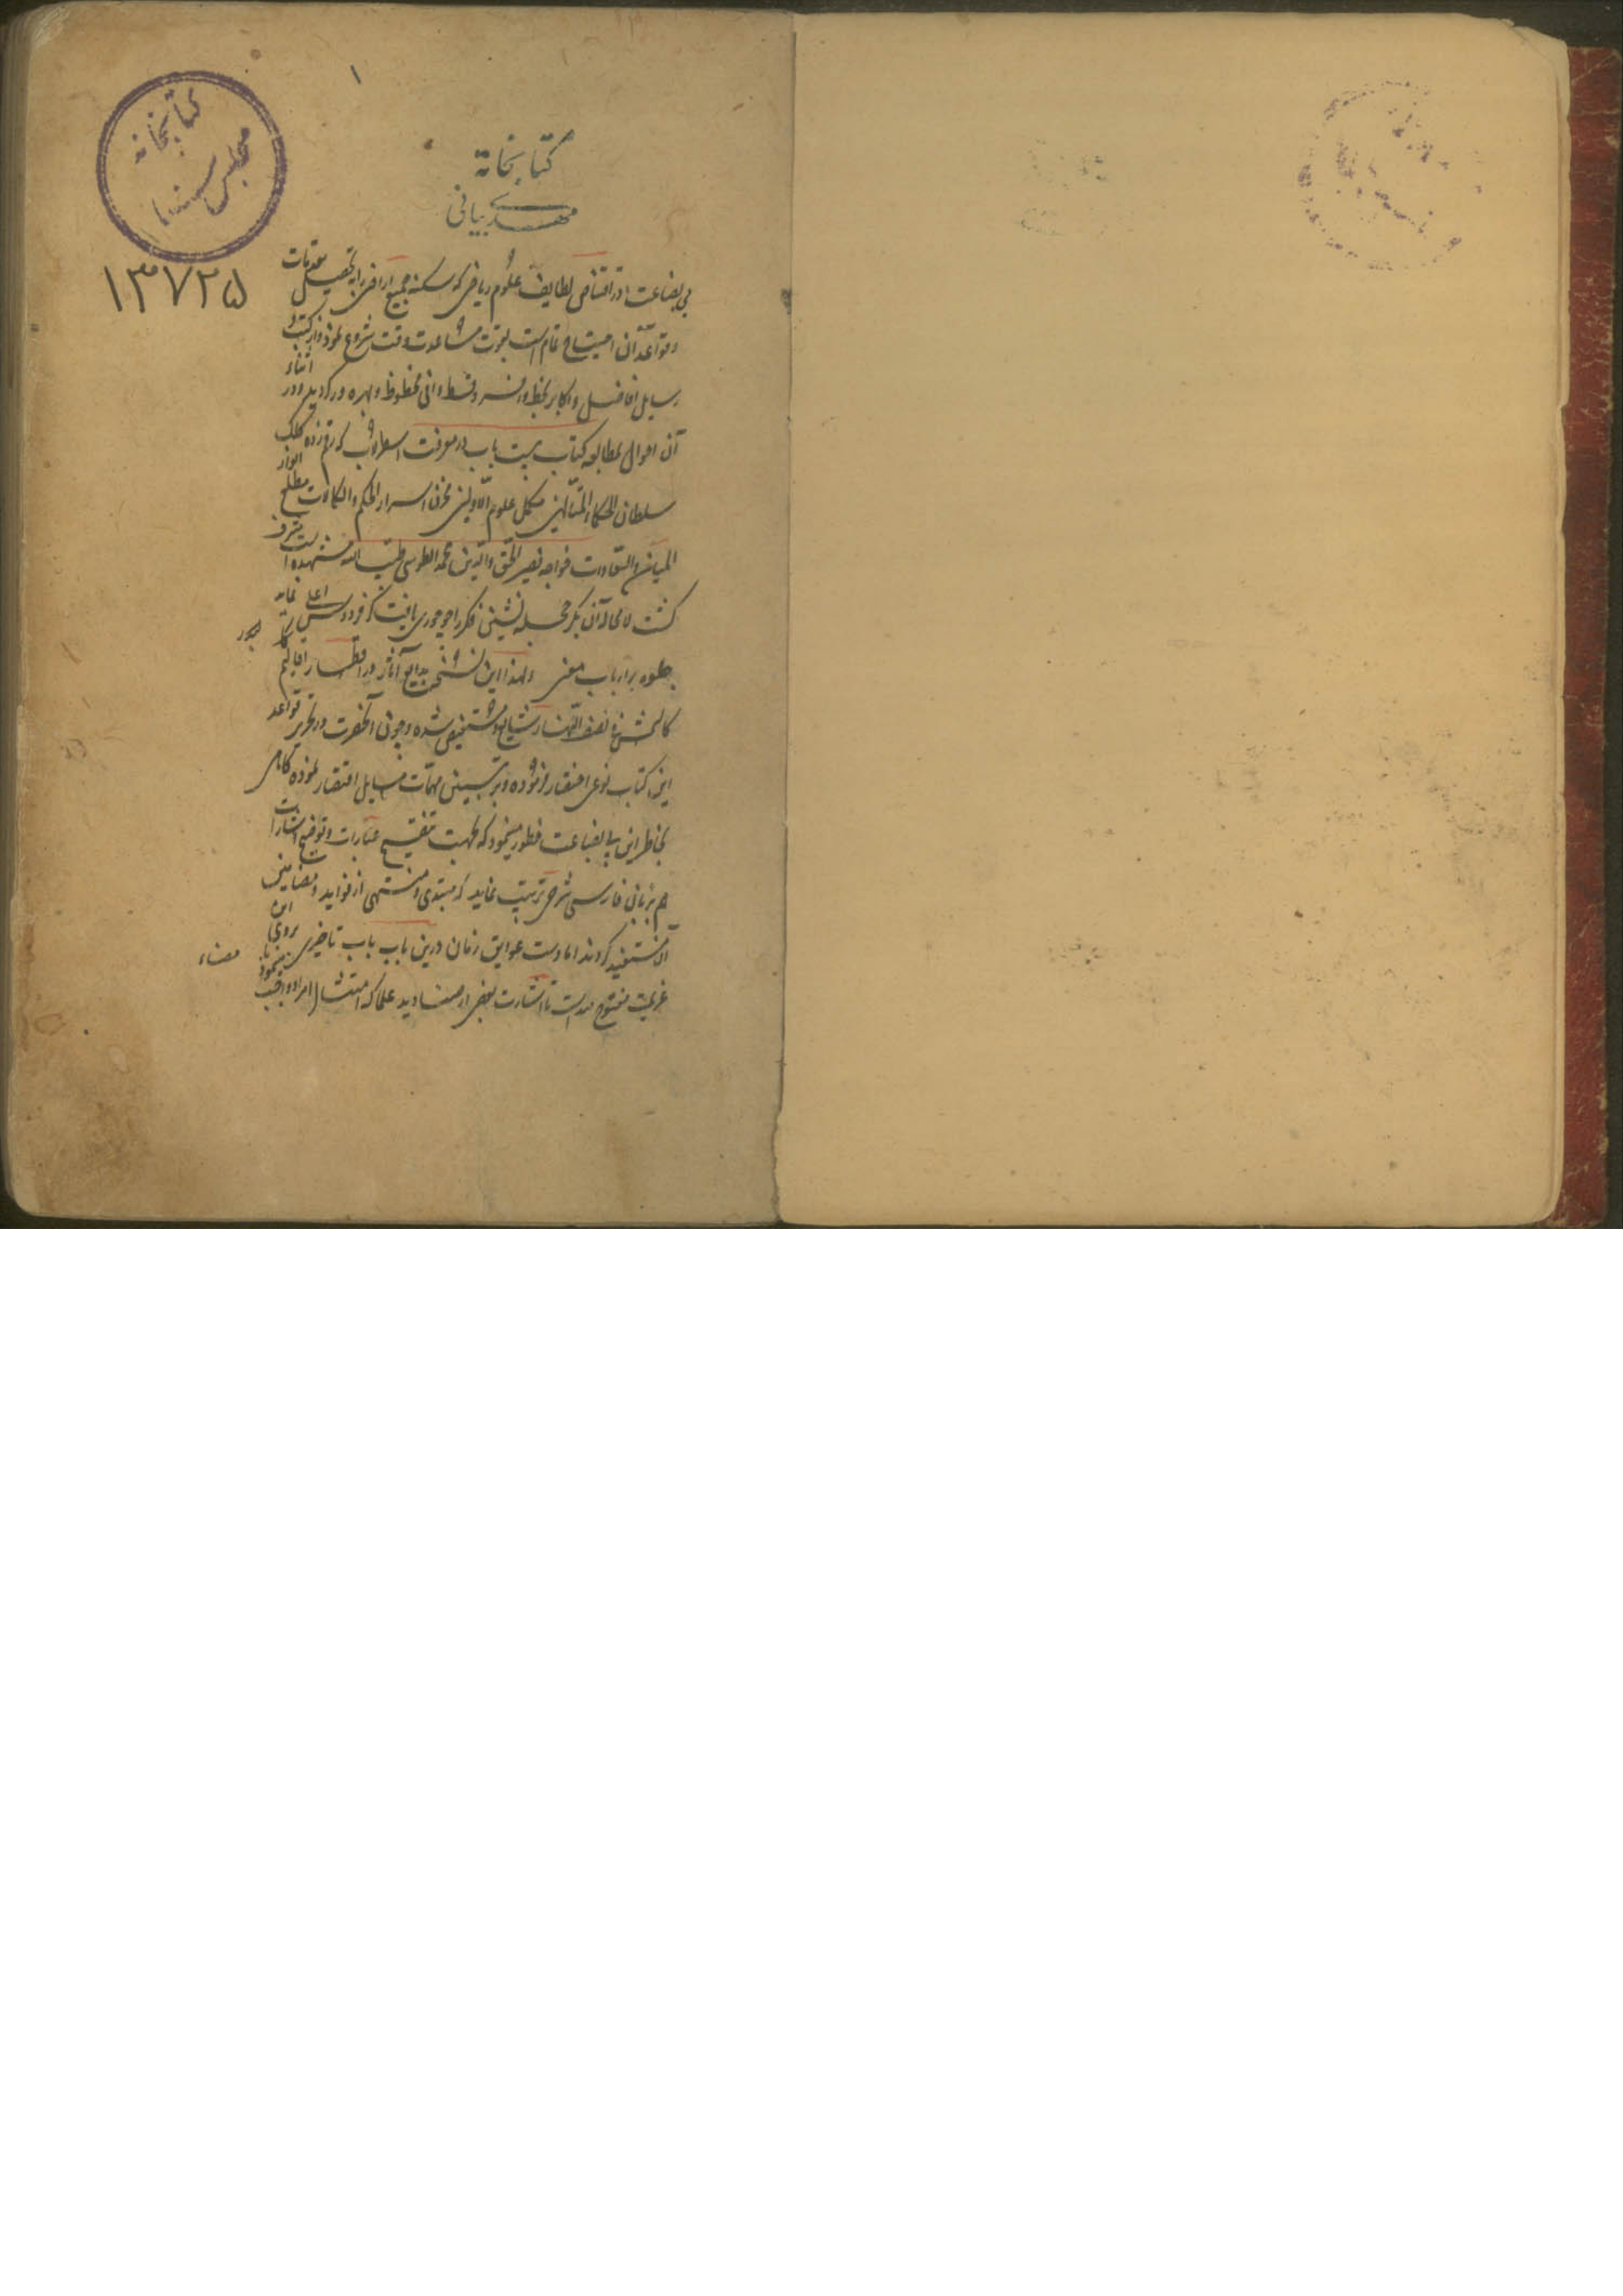 ۱
کتابخانه
مجلس سنا
۱۳۷۲۵
کتابخانه
مهدی بیانی
بی بضاعت در اقتناص لطایف علوم ریاضی که سکنه جمیع اراضی را به تحصیل مقدمات
و قواعد آن احتیاج تمام است بقوت مساعدت وقت شروع نمود و از کتب و
رسایل افاضل و اکابر بحظ وافر و قسط وافی محظوظ و بهره ور گردید و در اثناء
آن احوال بمطالعه کتاب بیست باب در معرفت اسطرلاب که رقم زده کلک
سلطان الحکماء المتألهین مکمل علوم الاولین مخزن اسرار الحکم والکمالات مطلع انوار
المیامن والسعادات خواجه نصیر الحق والدین محمد الطوسی طیب الله مشهده است مشرف
گشت لامحاله آن بکر حجله نشین فکر را چو حوری یافت کز فردوس اعلی نماید
جلوه بر ارباب معنی ولهذا این نسخه بدایع آثار در اقطار اقالیم
کالشمس فی نصف النهار شایع و مستفیض شده و چون آنحضرت در تحریر قواعد
این کتاب نوعی اختصار فرموده و بر تبیین مهمات مسایل اقتصار نموده گاهی
بخاطر این بی بضاعت خطور مینمود که بجهت تنقیح عبارات و توضیح اشارات
هم بزبان فارسی شرحی ترتیب نماید که مبتدی و منتهی از فواید و مضامین
آن مستفید گردند اما دست عوایق زمان درین باب باب تاخیر بر روی این
عزیمت مفتوح میداشت تا اشارت بعضی از صنادید علما که امتثال امر او واجب مینمود